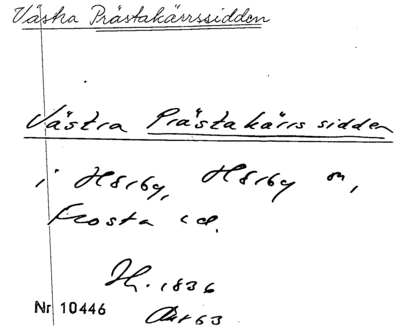 Västra Prästakärrssidden
Västra Prästakärrssidden
i Hörby, Hörby sn,
Frosta hd.
H. 1836
Akt 63
Nr 10446